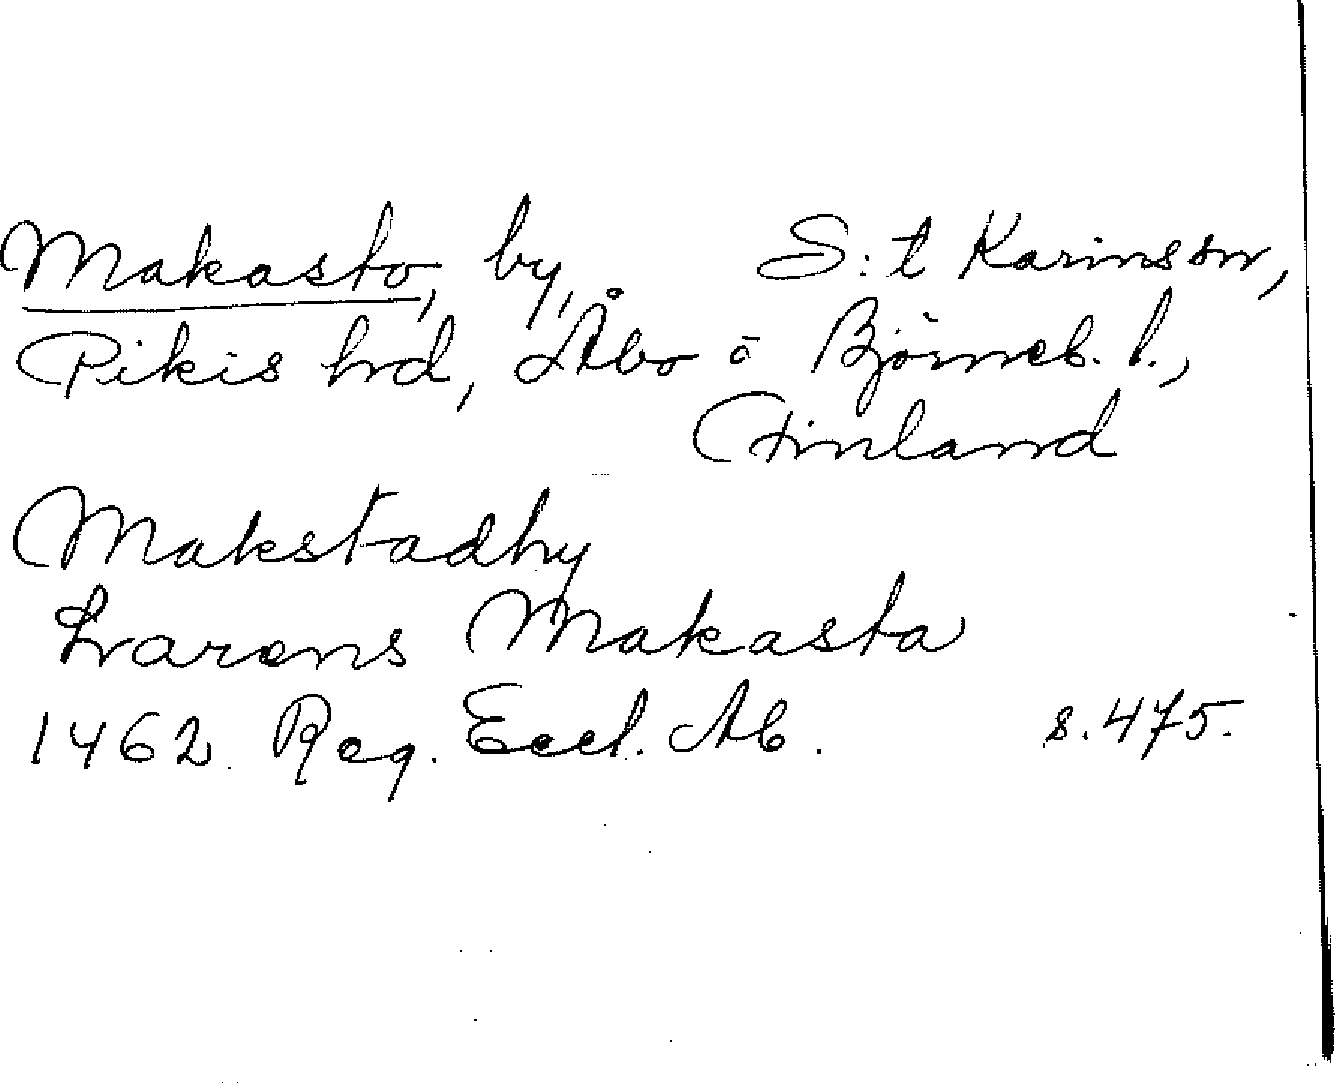 Makasto, by, S:t Karins sn,
Pikis hd, Åbo o Björneb. l.,
Finland
Makstadhy
Larens Makasta
1462 Reg. Eccl. Ab. s. 475.